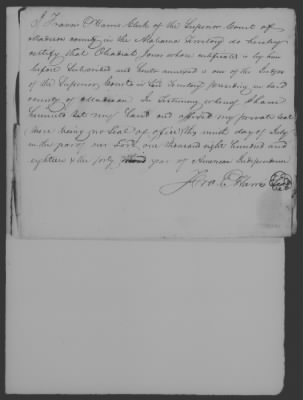 I Francis E Harris Clerk of the Superior Court of
Madison county in the Alabama Territory do hereby
certify that Obadiah Jones whose certificate is by him
before Subscribed and hereto annexed is one of the Judges
of the Superior Courts in said Territory presiding in said
county of Madison. In Testimony whereof I have
hereunto set my hand and affixed my private seal
there being no Seal of office this ninth day of July
in the year of our Lord one thousand eight hundred and
eighteen & the forty third year of American Independence
Fra. E Harris